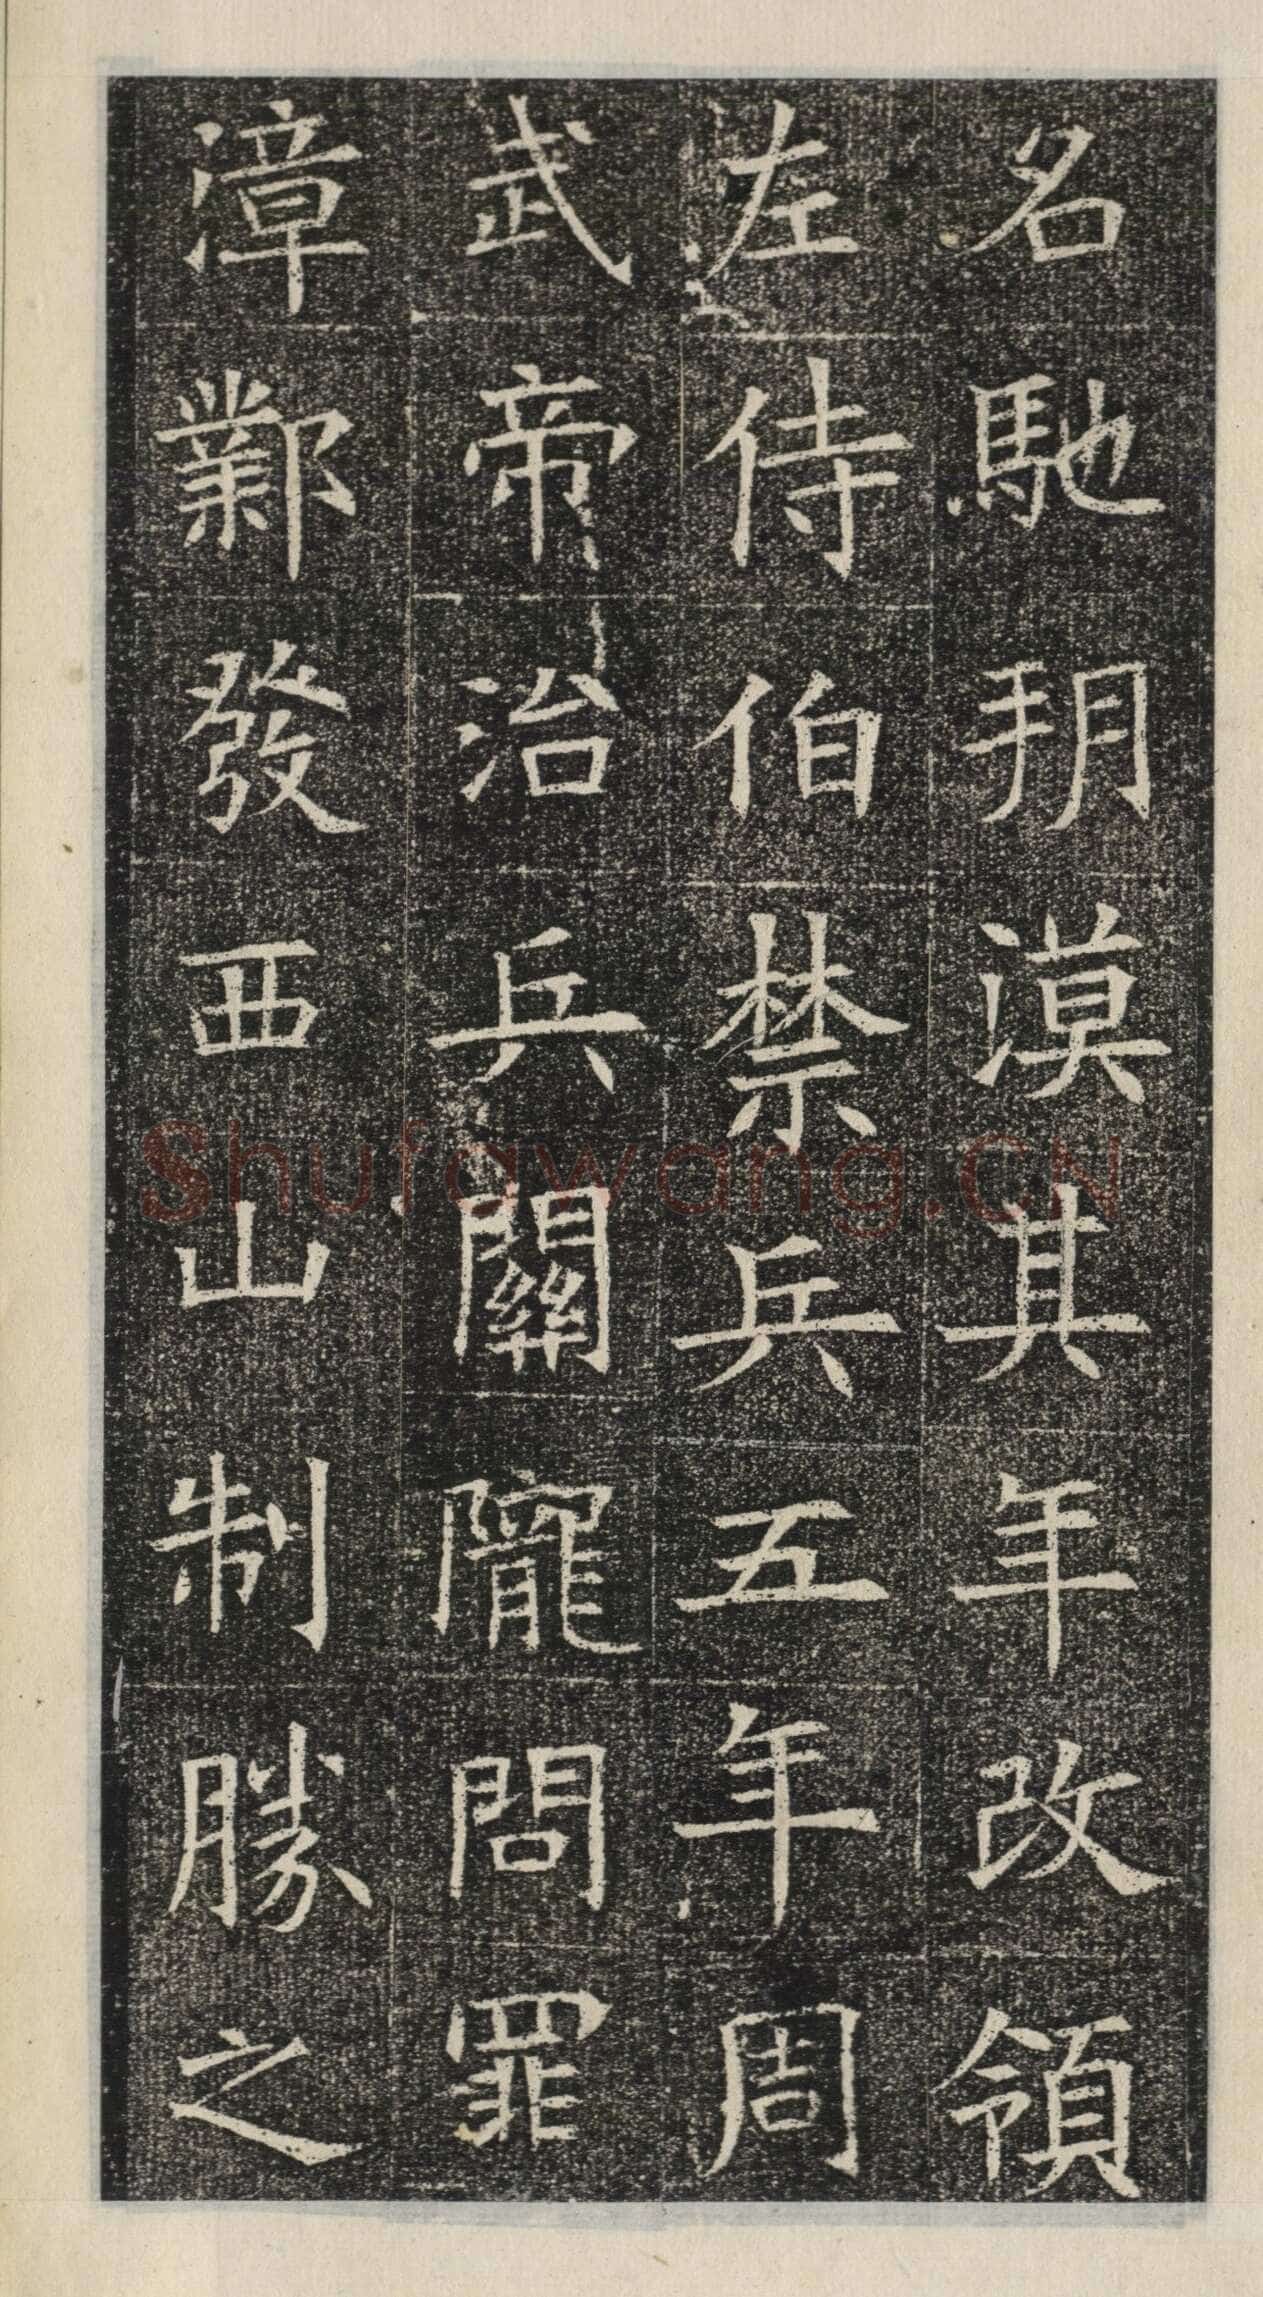 名馳朔漠其年改領
左侍伯禁兵五年周
武帝治兵關隴問罪
漳鄴發西山制勝之
Shufawang.CN